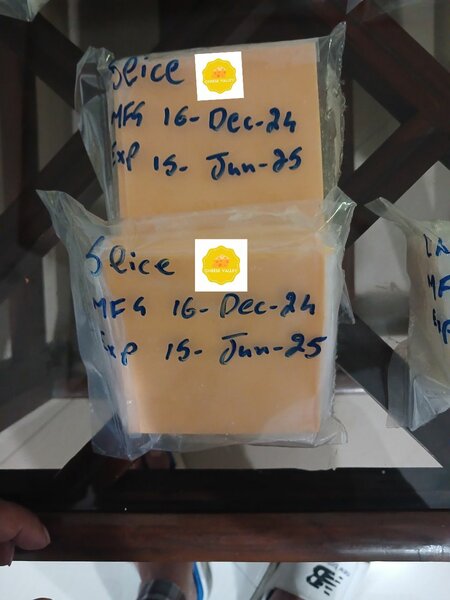 Slice
CHEESE VALLEY
MFG 16-Dec-24
Exp 15-Jun-25
Slice
CHEESE VALLEY
MFG 16-Dec-24
Exp 15-Jun-25